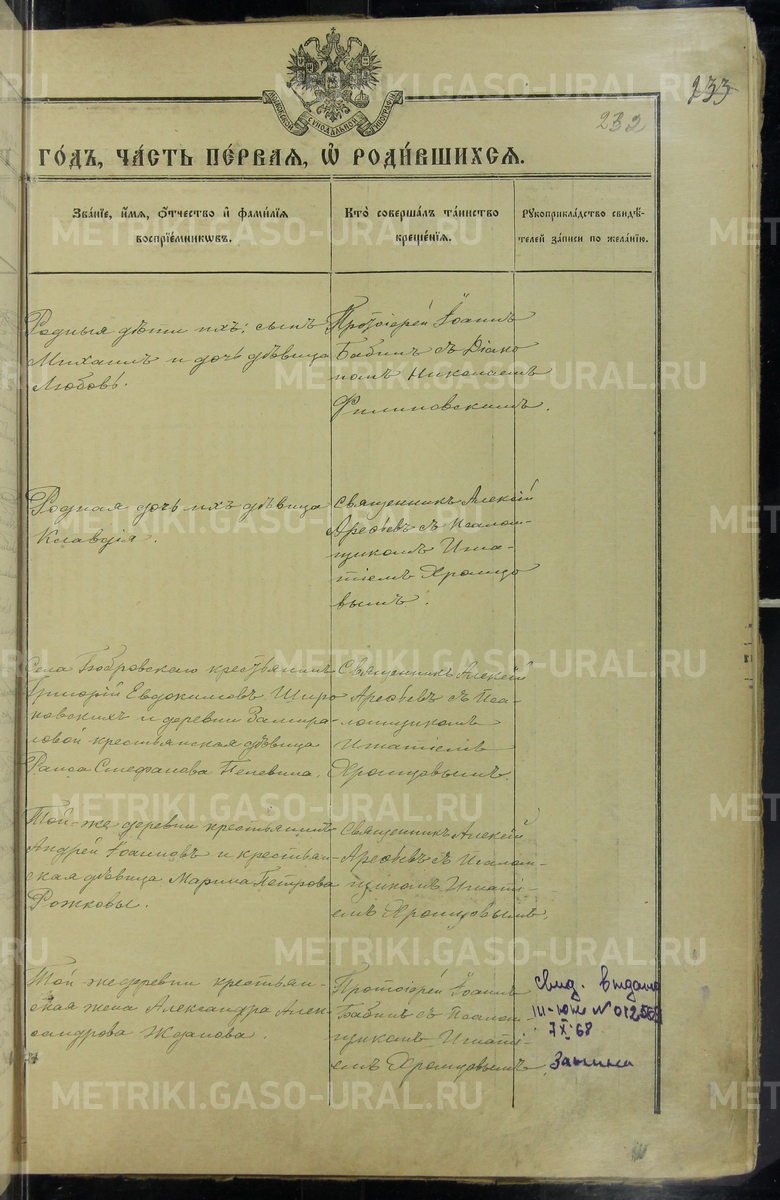 233
232
МОСКОВСКОЙ СѴНОДАЛЬНОЙ ТИПОГРАФІИ
ГО́ДЪ, ЧА́СТЬ ПЕ́РВАѦ, Ѽ РОДИ́ВШИХСѦ.
Зва́нїе, и҆́мѧ, ѻ҆́тчество и҆ фами́лїѧ
воспрїе́мникѡвъ.
Кто̀ соверша́лъ та́инство
креще́нїѧ.
Рꙋкоприкла́дство свидѣ́-
телей за́писи по жела́нїю.
Родныя дѣти ихъ: сынъ
Михаилъ и дочь дѣвица
Любовь.
Протоіерей Іоаннъ
Бабинъ съ Діако
номъ Николаемъ
Филиповскимъ.
Родная дочь ихъ дѣвица
Клавдія.
Священникъ Алексій
Арефьевъ съ Псалом-
щикомъ Игна-
тіемъ Хромцо
вымъ.
Села Бобровскаго крестьянинъ
Григорій Евдокимовъ Широ
новскихъ и деревни Замира-
ловой крестьянская дѣвица
Раиса Стефанова Пелевина.
Священникъ Алексій
Арефьевъ съ Пса-
ломщикомъ
Игнатіемъ
Хромцовымъ.
Той-же деревни крестьянинъ
Андрей Іоанновъ и крестьян-
ская дѣвица Марина Петрова
Рожковы.
Священникъ Алексій
Арефьевъ съ Псалом-
щикомъ Игнаті-
емъ Хромцовымъ.
Той же деревни крестьян-
ская жена Александра Алек-
сандрова Жданова.
Протоіерей Іоаннъ
Бабинъ съ Псалом-
щикомъ Игнаті-
емъ Хромцовымъ.
Свид. выдано
III-ЮЛ № 012568
7 XI 68
METRIKI.GASO-URAL.RU